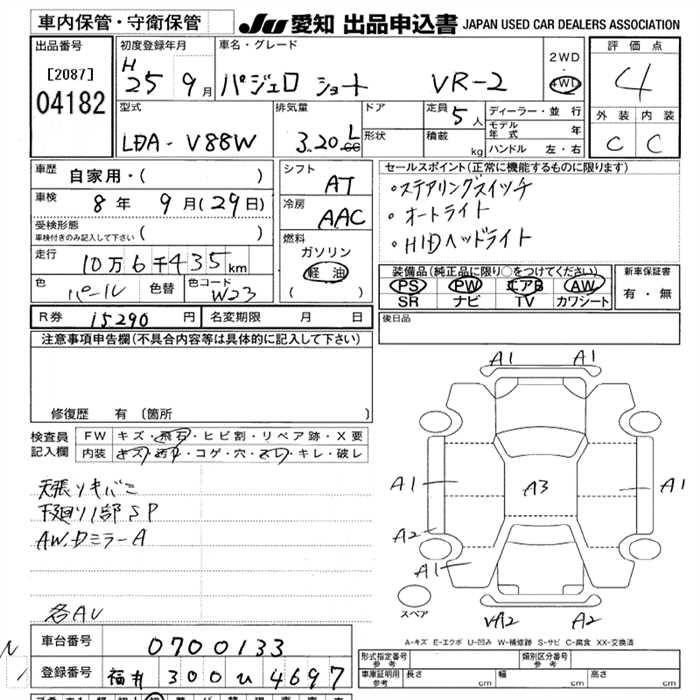 車内保管・守衛保管
JU 愛知 出品申込書 JAPAN USED CAR DEALERS ASSOCIATION
出品番号
[2087]
04182
初度登録年月
H 25 9月
車名・グレード
パジェロ ショート VR-2
2WD
・
4WD
評価点
4
外装 内装
C C
型式
LDA-V88W
排気量
3.20 L cc
ドア
形状
定員 5人
積載 kg
ディーラー・並行
モデル年式 年
ハンドル 左・右
車歴 自家用・( )
車検 8年 9月(29日)
受検形態
車検付きのみ記入して下さい ( )
走行 10万6千435km
色 パール 色替 色コード W23
シフト AT
冷房 AAC
燃料
ガソリン
軽油
( )
セールスポイント(正常に機能するものに限ります)
・ステアリングスイッチ
・オートライト
・HIDヘッドライト
装備品(純正品に限り○をつけてください)
PS PW エアB AW
SR ナビ TV カワシート
新車保証書
有・無
R券 15290円 名変期限 月 日
後日品
注意事項申告欄(不具合内容等は具体的に記入して下さい)
修復歴 有 〔箇所 〕
検査員
記入欄
FW キズ・飛石・ヒビ割・リペア跡・X要
内装 キズ・汚れ・コゲ・穴・スレ・キレ・破レ
天張りキバミ
下廻り1部SP
AW.Dミラー A
各AU
A1 A1
A1 A3 A1
A2
A1
スペア
VA2 A2
A-キズ E-エクボ U-凹み W-補修跡 S-サビ C-腐食 XX-交換済
車台番号 0700133
登録番号 福井 300 ひ 4697
型式指定番号
参考
類別区分番号
参考
車庫証明用
参考
長さ cm 幅 cm 高さ cm